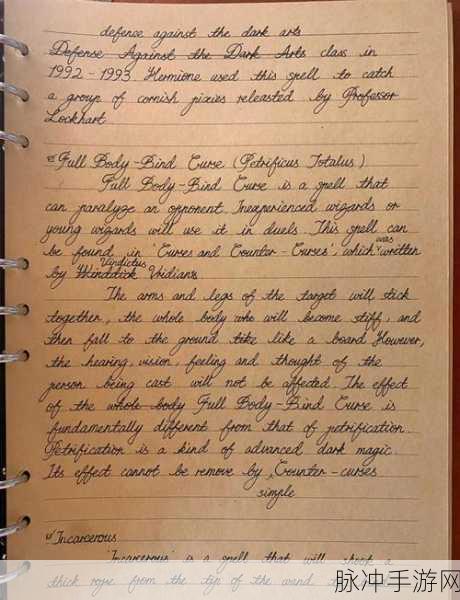 defense against the dark arts
Defense Against the Dark Arts class in
1992-1993, Hermione used this spell to catch
a group of cornish pixies releasted by Professor
Lockhart
Full Body-Bind Curse (Petrificus Totalus)
Full Body-Bind Curse is a spell that
can paralyze an opponent. Inexperienced wizards or
young wizards will use it in duels. This spell can
be found in 'Curses and Counter-Curses', which was written
by Vindictus Viridians
The arms and legs of the target will stick
together, the whole body who will become stiff, and
then fall to the ground like like a board. However,
the hearing, vision, feeling and thought of the
person being cast will not be affected. The effect
of the whole body Full Body-Bind Curse is
fundamentally different from that of petrification.
Petrification is a kind of advanced dark magic.
Its effect cannot be remove by Counter-curses
simple
Incarcerous
'Incarcerous' is a spell that will shoot a
thick rope from the tip of the wand
脉冲手游网